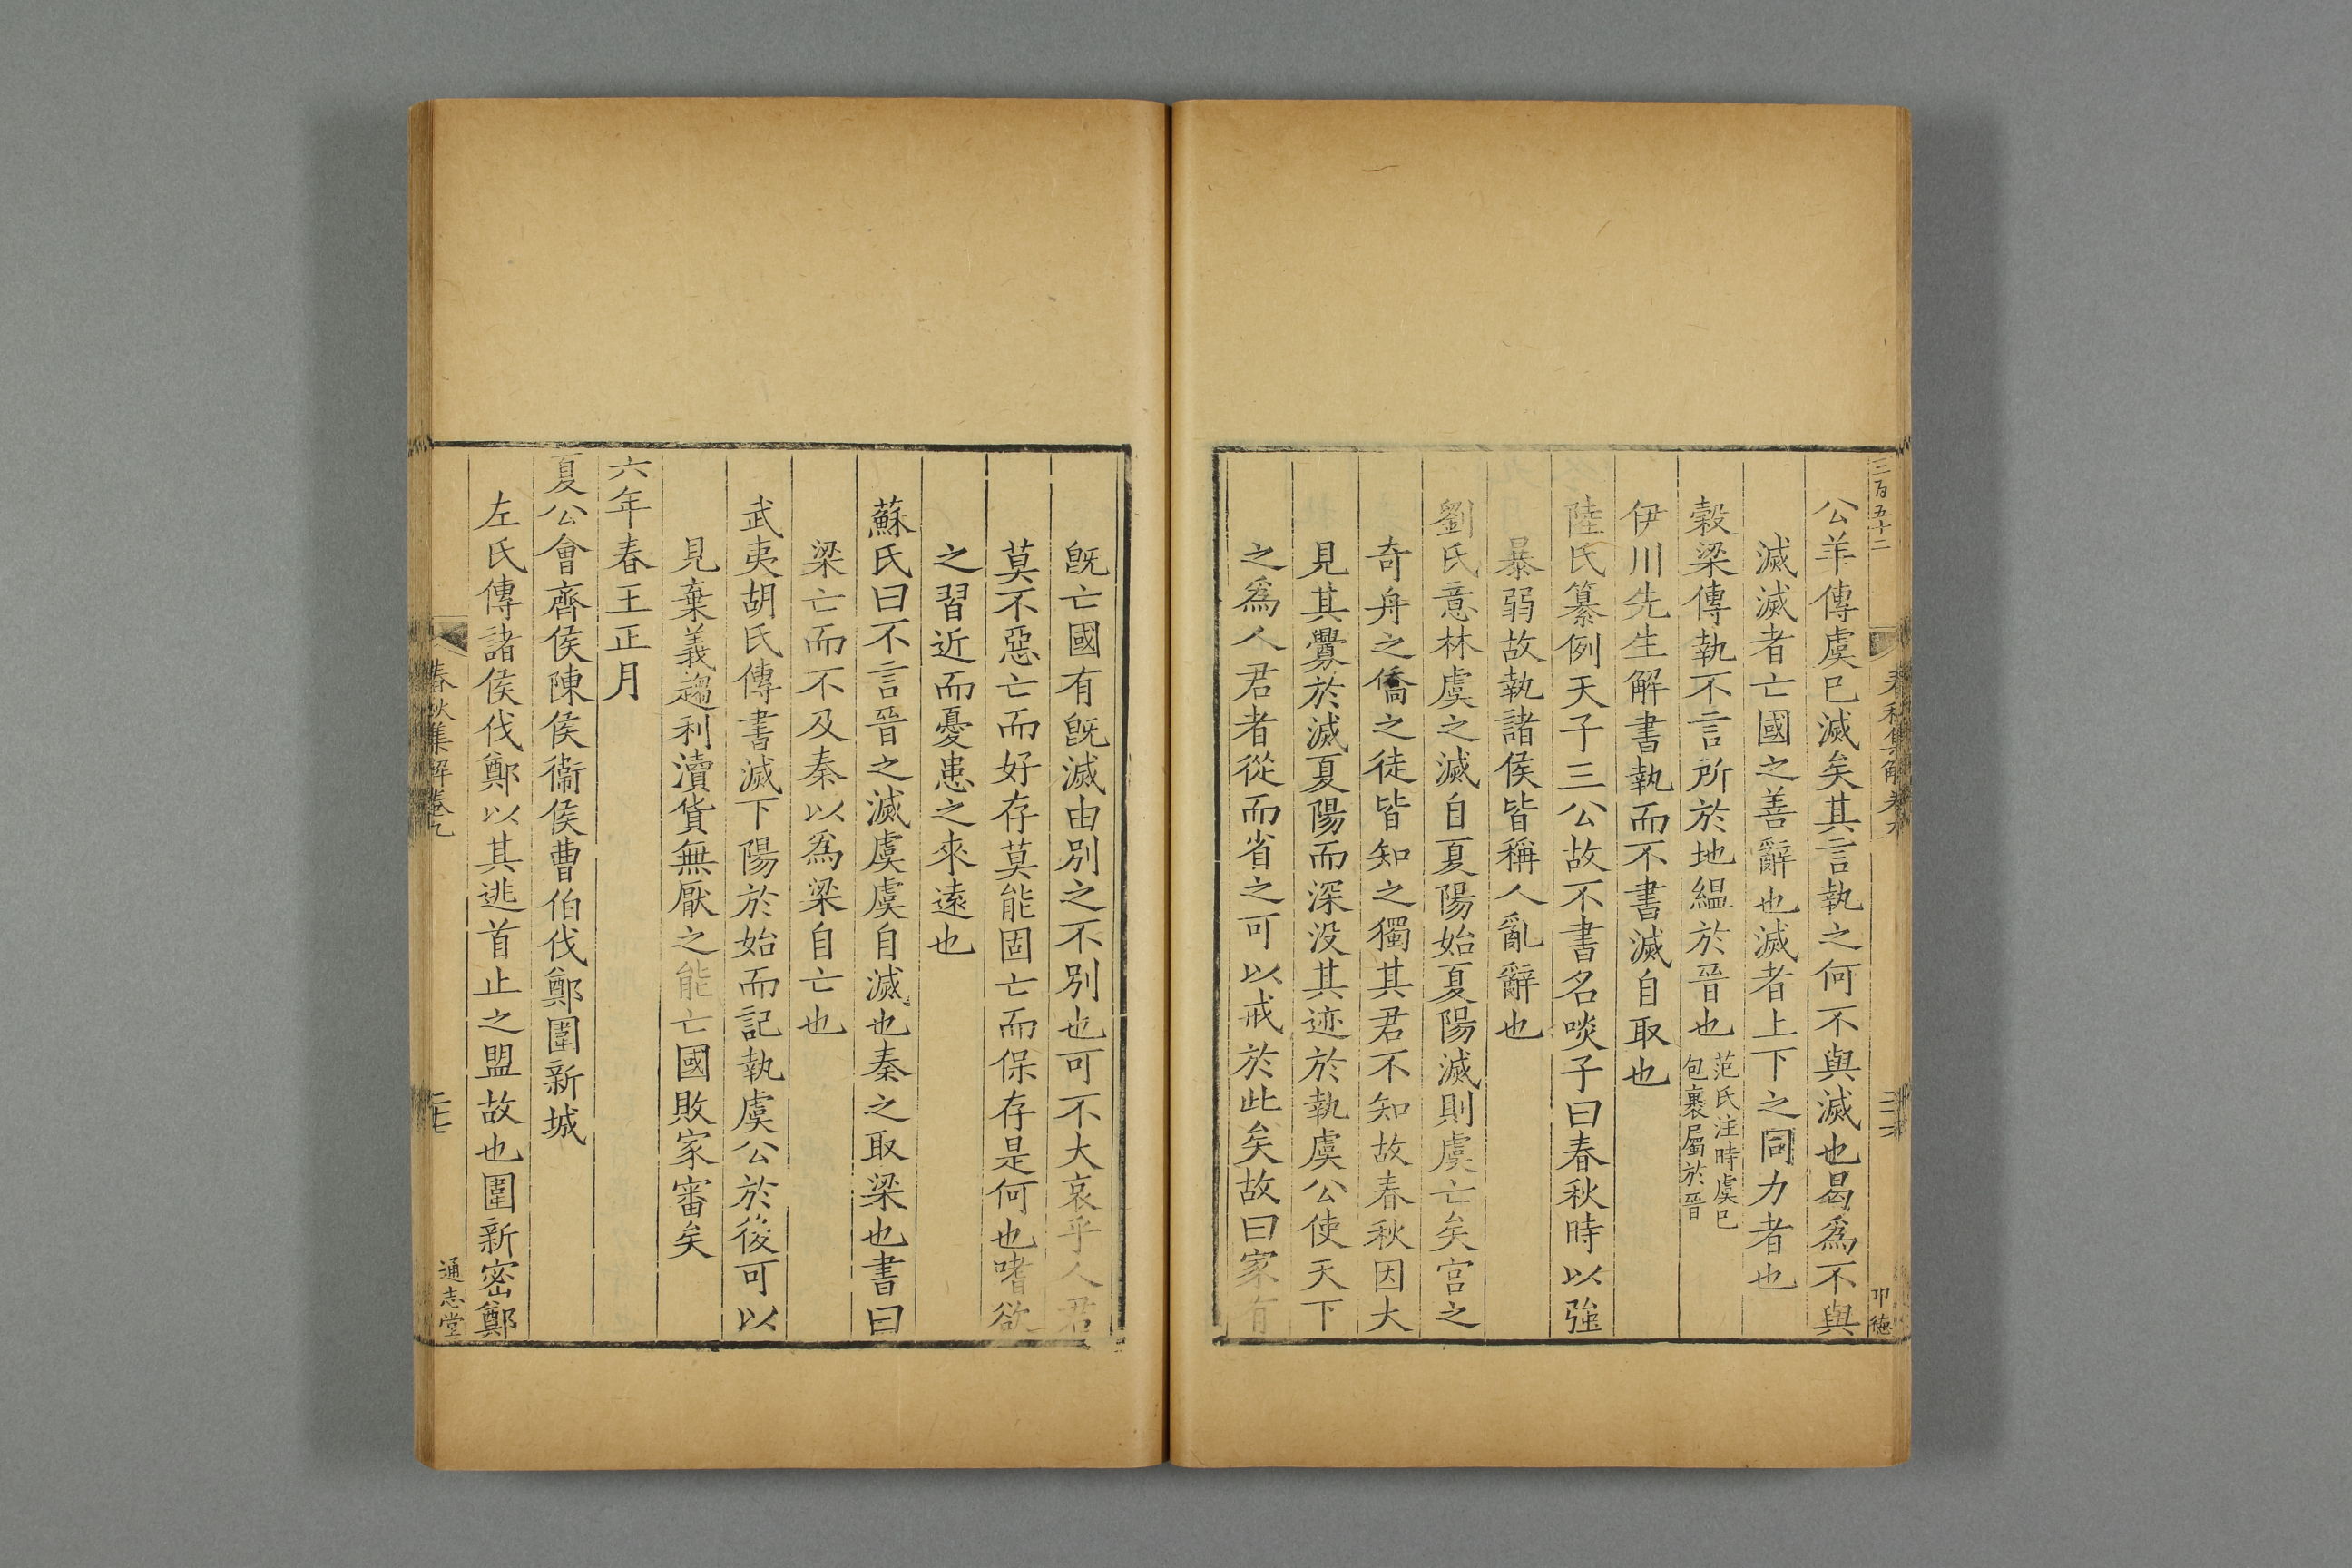 三百五十二
春秋集解卷九
二十六
卭德
公羊傳虞已滅矣其言執之何不與滅也曷爲不與
滅滅者亡國之善辭也滅者上下之同力者也
穀梁傳執不言所於地緼於晉也范氏注時虞已
包裹屬於晉
伊川先生解書執而不書滅自取也
陸氏纂例天子三公故不書名啖子曰春秋時以強
暴弱故執諸侯皆稱人亂辭也
劉氏意林虞之滅自夏陽始夏陽滅則虞亡矣宫之
奇舟之僑之徒皆知之獨其君不知故春秋因大
見其釁於滅夏陽而深没其迹於執虞公使天下
之爲人君者從而省之可以戒於此矣故曰家有
旣亡國有旣滅由別之不別也可不大哀乎人君
莫不惡亡而好存莫能固亡而保存是何也嗜欲
之習近而憂患之來遠也
蘇氏曰不言晉之滅虞虞自滅也秦之取梁也書曰
梁亡而不及秦以爲梁自亡也
武夷胡氏傳書滅下陽於始而記執虞公於後可以
見棄義趨利瀆貨無厭之能亡國敗家審矣
六年春王正月
夏公會齊侯陳侯衞侯曹伯伐鄭圍新城
左氏傳諸侯伐鄭以其逃首止之盟故也圍新密鄭
春秋集解卷九
二十七
通志堂